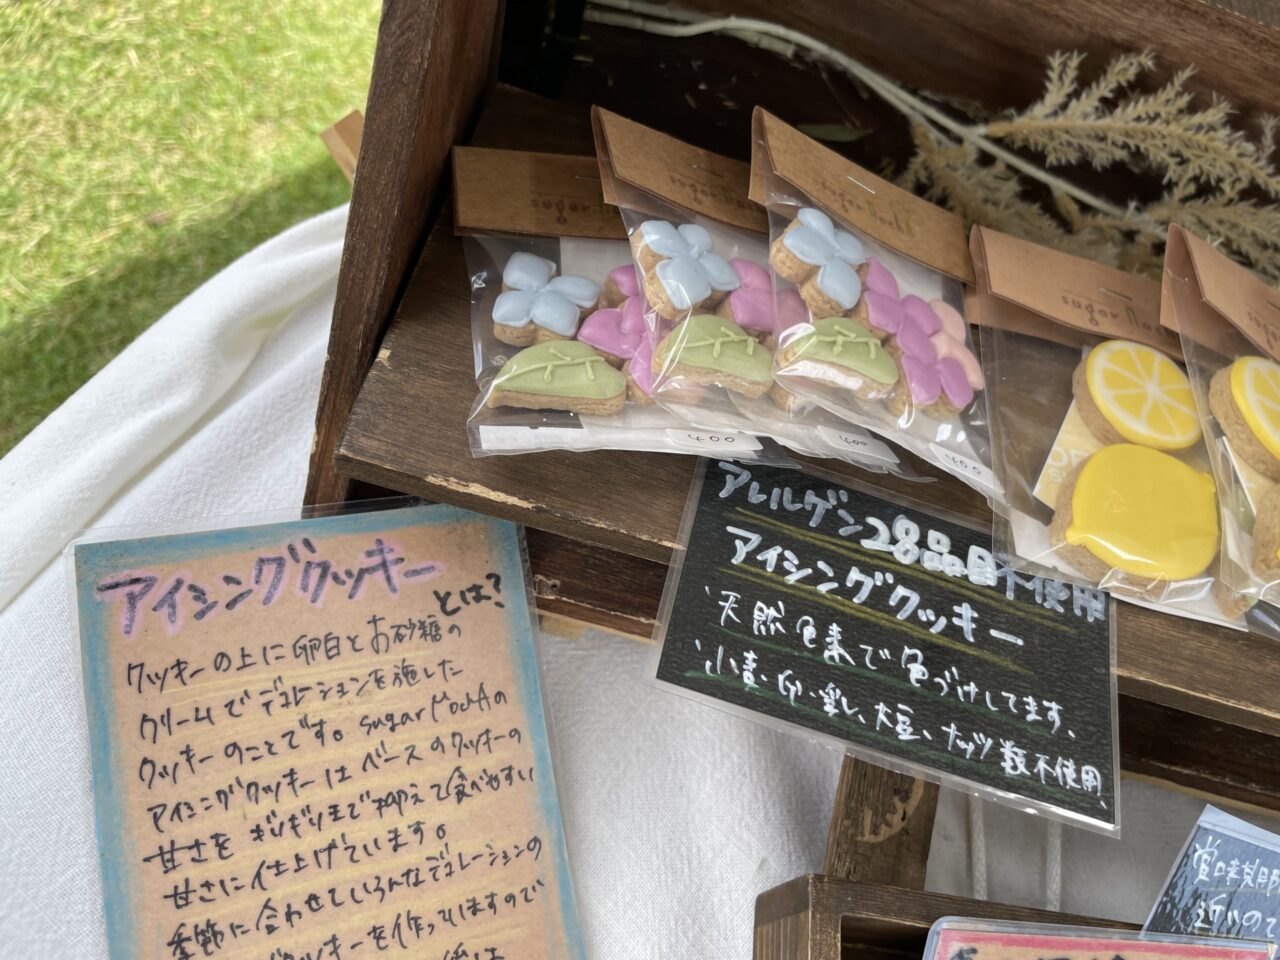 sugar
sugar
sugar
sugar
400
400
400
アレルゲン28品目不使用
アイシングクッキー
天然色素で色づけしてます、
小麦・卵・乳、大豆、ナッツ類不使用、
アイシングクッキー
とは?
クッキーの上に卵白とお砂糖の
クリームでデコレーションを施した
クッキーのことです。sugar
アイシングクッキーはベースのクッキーの
甘さをギリギリまで抑えて食べやすい
甘さに仕上げています。
季節に合わせていろんなデコレーションの
クッキーを作っていますので
賞味期限
近いので